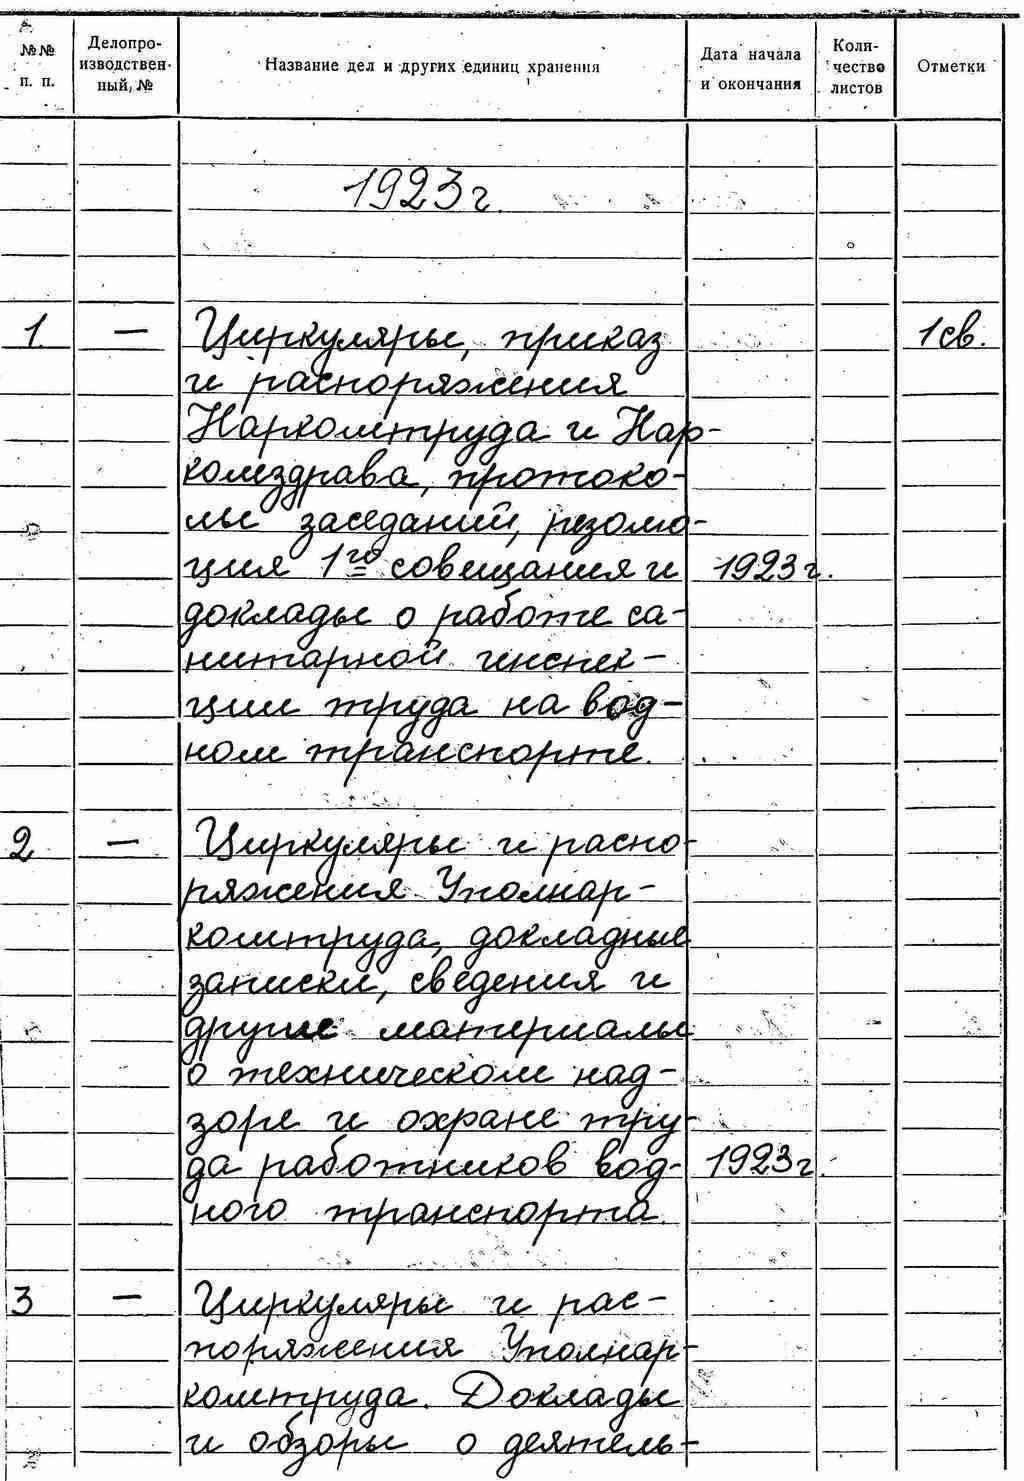 №№ п. п.
Делопро-
изводствен-
ный, №
Название дел и других единиц хранения
Дата начала
и окончания
Коли-
чество
листов
Отметки
1923 г.
1. — Циркуляры, приказ 1 св.
и распоряжения
Наркомтруда и Нар-
комздрава, протоко-
лы заседаний, резолю-
ция 1го совещания и 1923 г.
доклады о работе са-
нитарной инспек-
ции труда на вод-
ном транспорте.
2 — Циркуляры и распо-
ряжения Уполнар-
комтруда, докладные
записки, сведения и
другие материалы
о техническом над-
зоре и охране тру-
да работников вод- 1923 г.
ного транспорта.
3 — Циркуляры и рас-
поряжения Уполнар-
комтруда. Доклады
и обзоры о деятель-